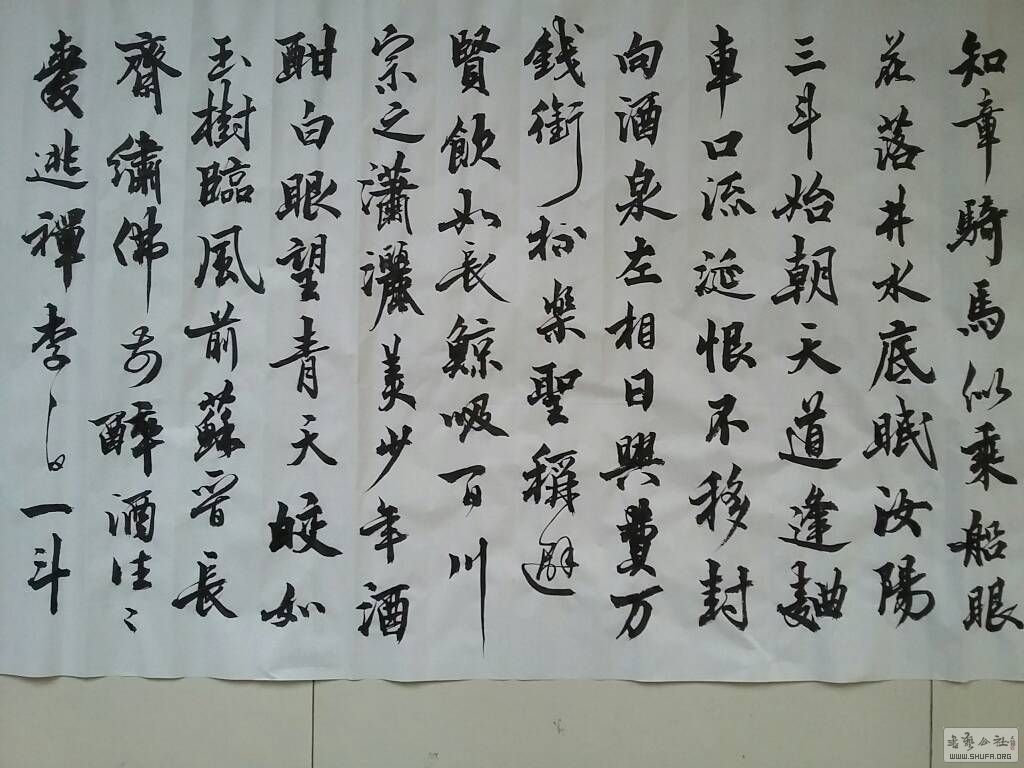 知章騎馬似乘船眼
花落井水底眠汝陽
三斗始朝天道逢麯
車口流涎恨不移封
向酒泉左相日興費万
錢銜杯樂聖稱避
賢飲如長鯨吸百川
宗之瀟灑美少年酒
酣白眼望青天皎如
玉樹臨風前蘇晉長
齋繡佛前醉酒往〻
愛逃禪李白一斗
WWW.SHUFA.ORG